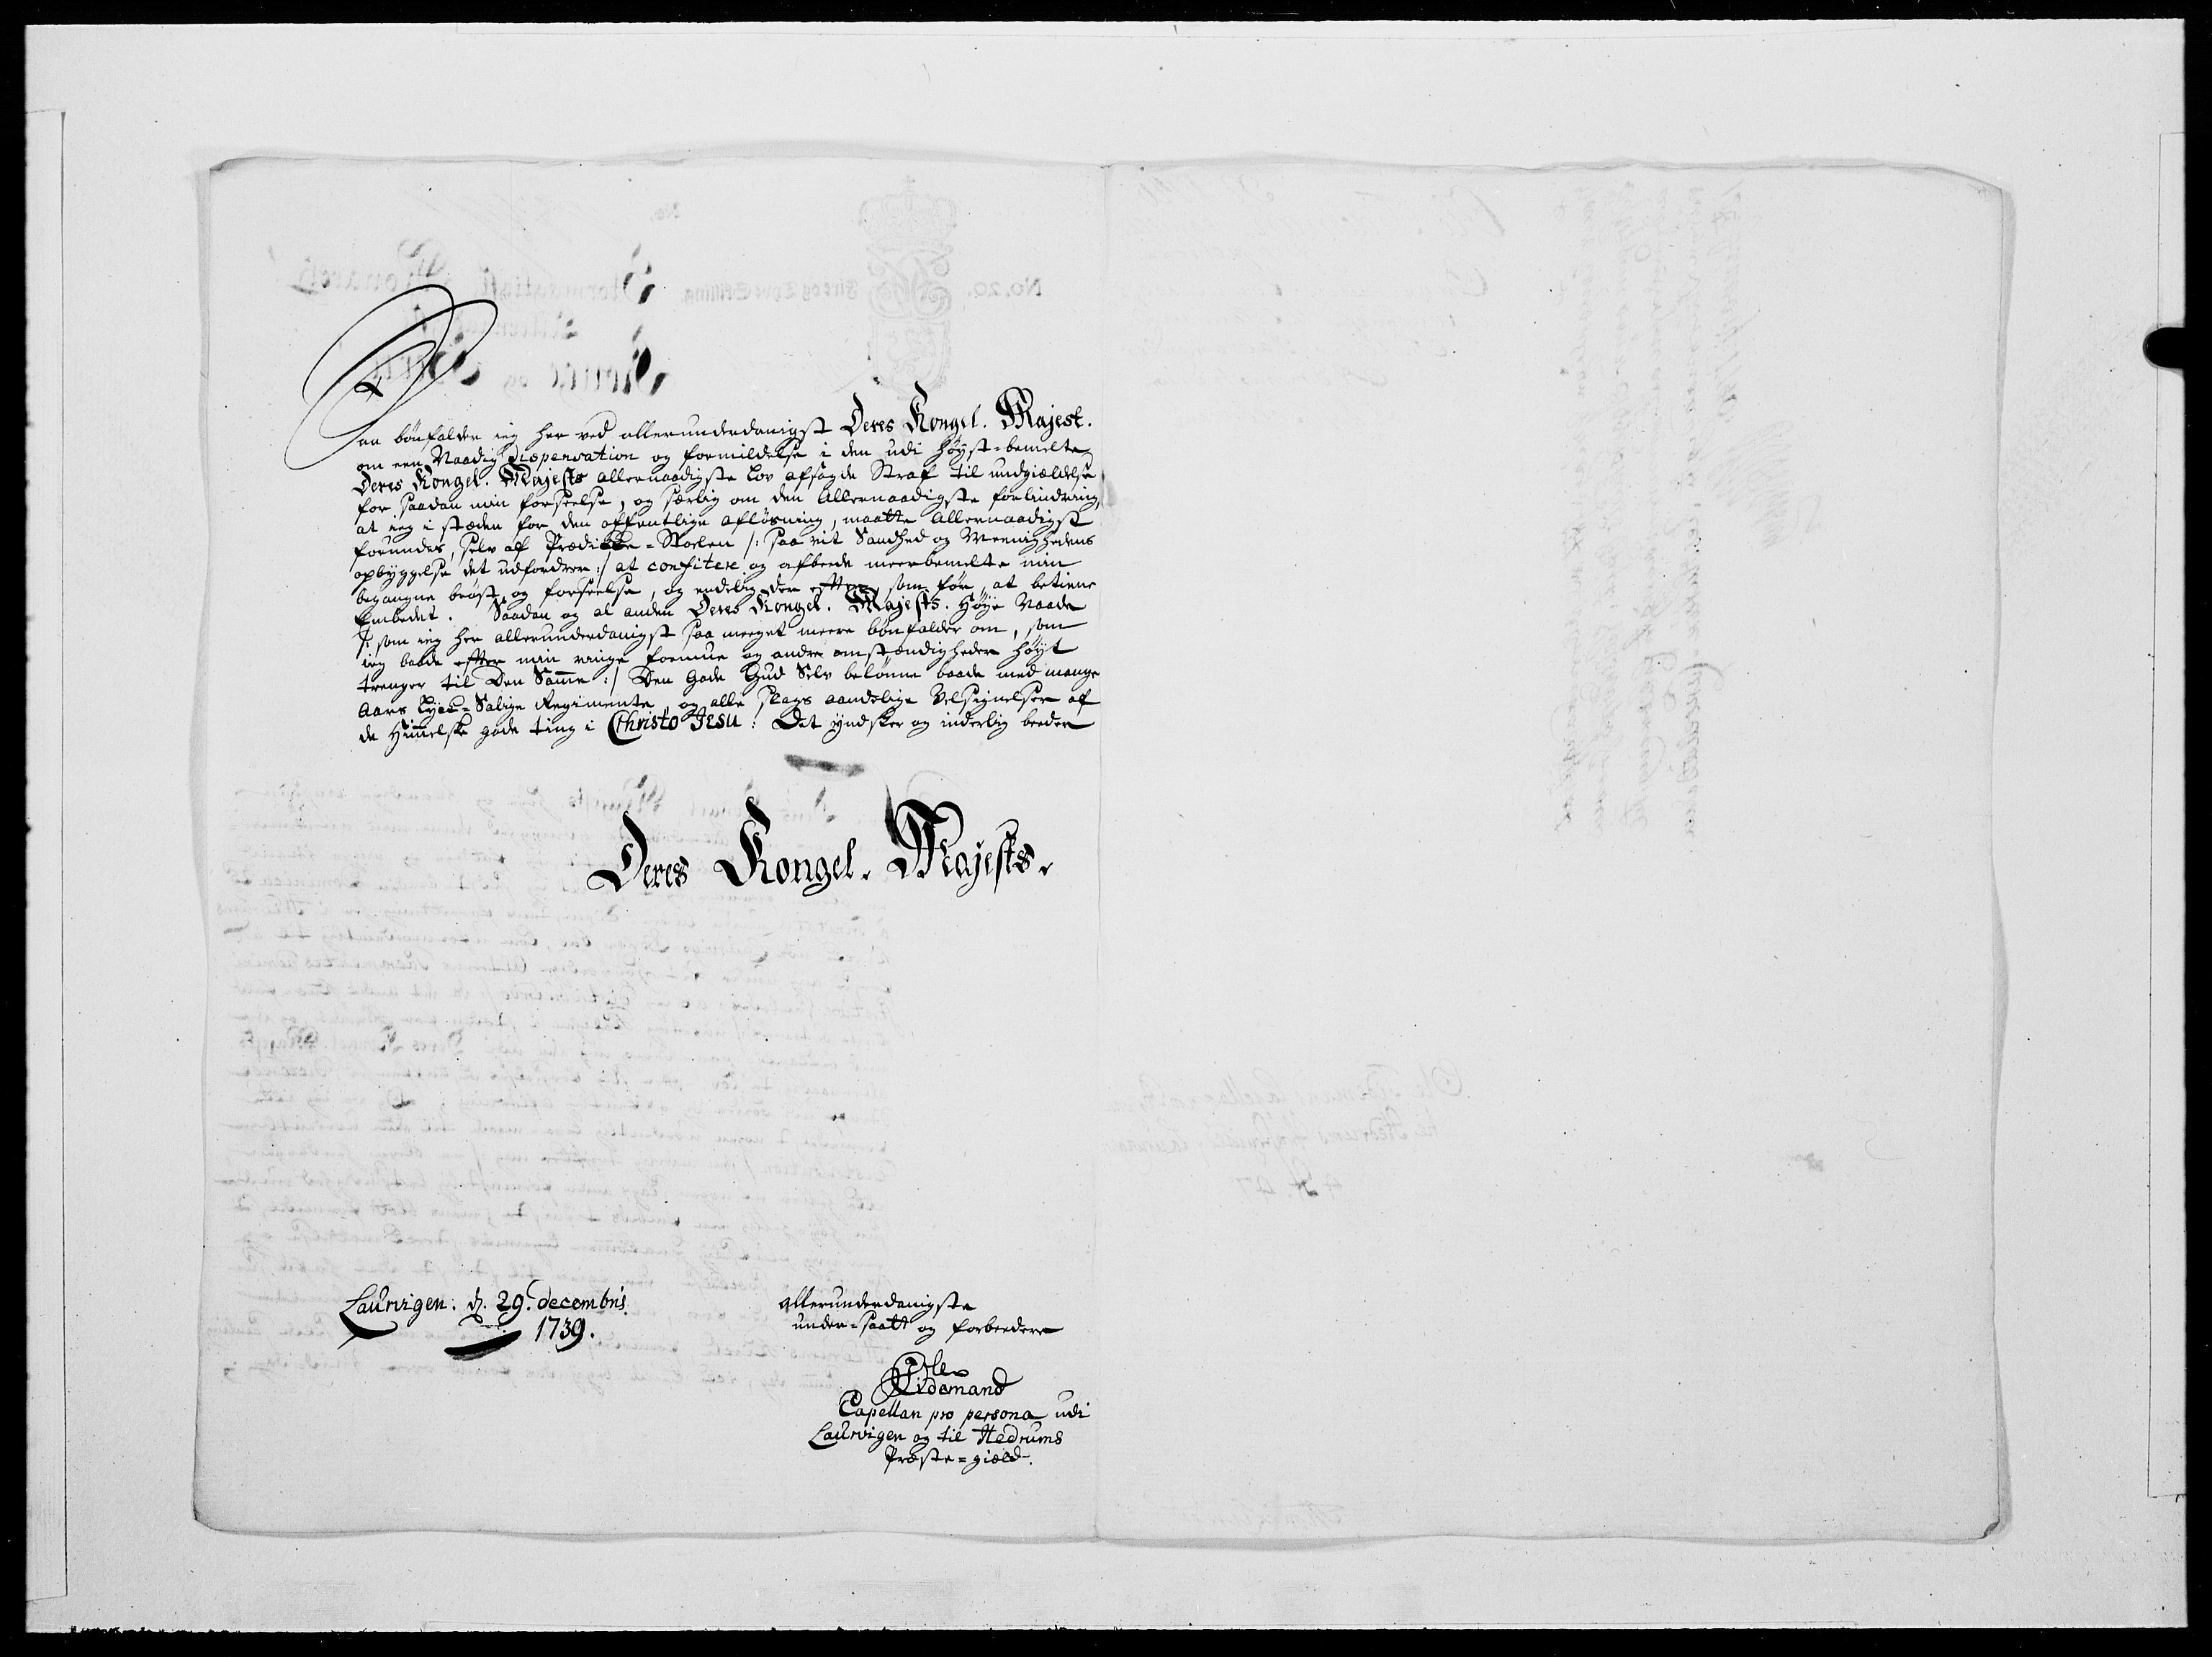 Saa bønfalder ieg her ved allerunderdanigst Deres Kongel. Majest.
om een Naadig dispensation og formildelse i den udi høyst-bemelte
Deres Kongel. Majests allernaadigste Lov afsagde Straf til undgiældelse
for saadan min forseelse, og særlig om den Allernaadigste forlindring,
at ieg i stæden for den offentlige afløsning, maatte Allernaadigst
forundes, selv af Prædikke-Stoelen /: saa vit Sandhed og Meenighedens
opbyggelse det udfordrer :/ at confitere og afbeede meerbemelte min
begangne brøst og forseelse, og endelig der efter, som før, at betiene
Embedet. Saadan og al anden Deres Kongel. Majests. Høye Naade
/: som ieg her allerunderdanigst saa meeget meere bønfalder om, som
ieg baade efter min ringe formue og andre omstændigheder høyt
trenger til Den Samme :/ Den Gode Gud Selv belønne baade med mange
Aars Lyck-Salige Regimente, og alle slags aandelige Velsignelser af
de Himmelske gode ting i Christo Jesu: Det ynsker og inderlig beeder
Deres Kongel. Majests.
Laurvigen: d. 29. decembris
1739.
allerunderdanigste
under-saatt og forbeedere
Ole
Tidemand
Capellan pro persona udi
Laurvigen og til Hedrums
Præste-gield.